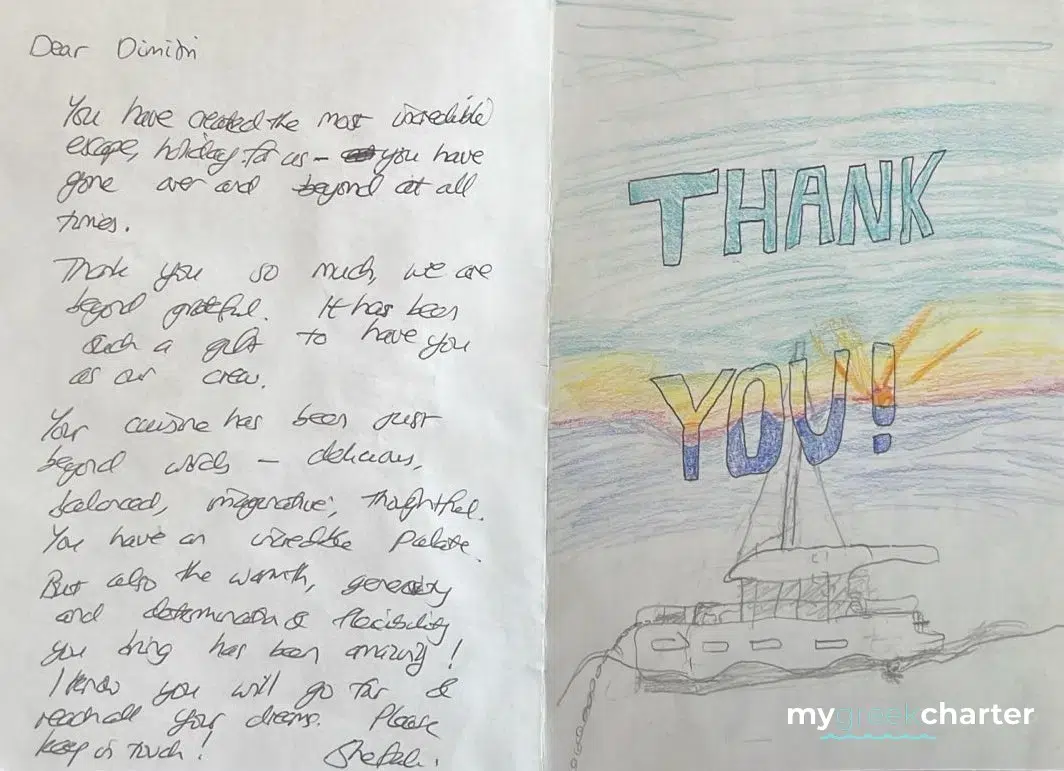 Dear Dimitri
You have created the most incredible
escape, holiday for us – you have
gone over and beyond at all
times.
Thank you so much, we are
beyond grateful. It has been
such a gift to have you
as our crew.
Your cuisine has been just
beyond words – delicious,
balanced, imaginative, thoughtful.
You have an incredible Palate.
But also the warmth, generosity
and determination & flexibility
you bring has been amazing!
I know you will go far &
reach all your dreams. Please
keep in touch!
THANK
YOU!
mygreekcharter